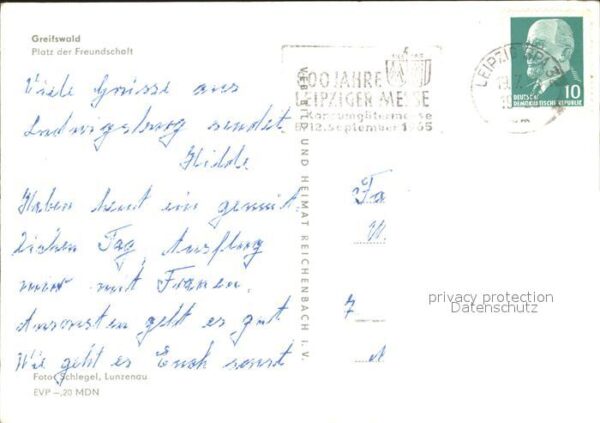 Greifswald
Platz der Freundschaft
Viele Grüsse aus
Ludwigsburg sendet
Hilde
Haben heut ein gemüt,
lichen Tag, Ausflug
nur mit Frauen.
Ansonsten geht es gut
Wie geht es Euch sonst
Foto: Schlegel, Lunzenau
EVP –,20 MDN
VEB BILD UND HEIMAT REICHENBACH I. V.
800 JAHRE
LEIPZIGER MESSE
Konsumgütermesse
12. September 1965
LEIPZIG
DEUTSCHE
DEMOKRATISCHE REPUBLIK
10
Fa
7
privacy protection
Datenschutz